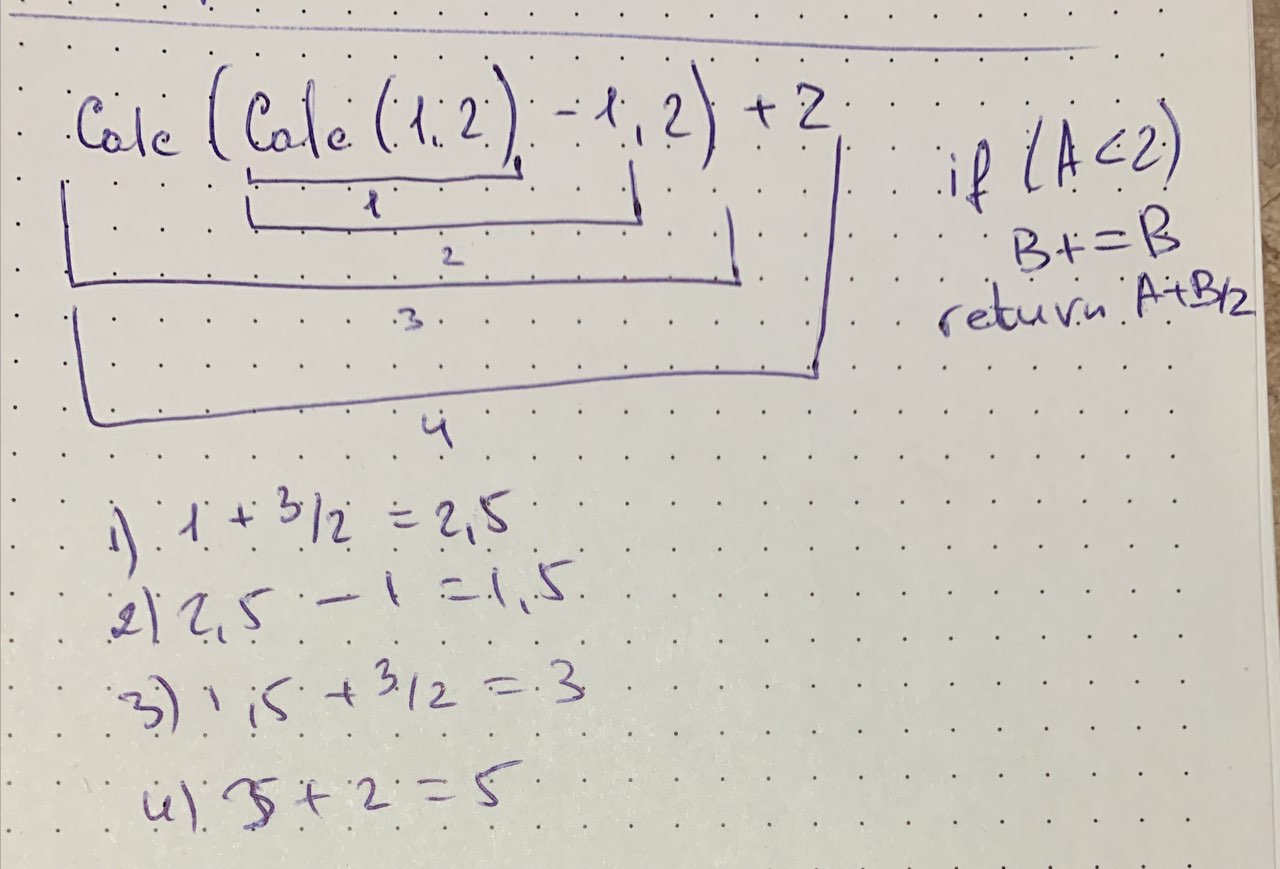 Calc (Calc (1,2) - 1, 2) + 2
1
2
3
4
if (A<2)
B+=B
return A+B/2
1) 1 + 3/2 = 2,5
2) 2,5 - 1 = 1,5
3) 1,5 + 3/2 = 3
4) 3 + 2 = 5